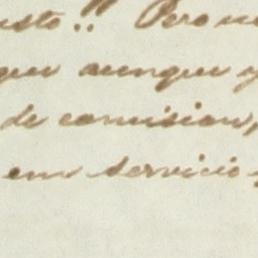 usto!! Pero no
que aunque y
de comision,
em servicio